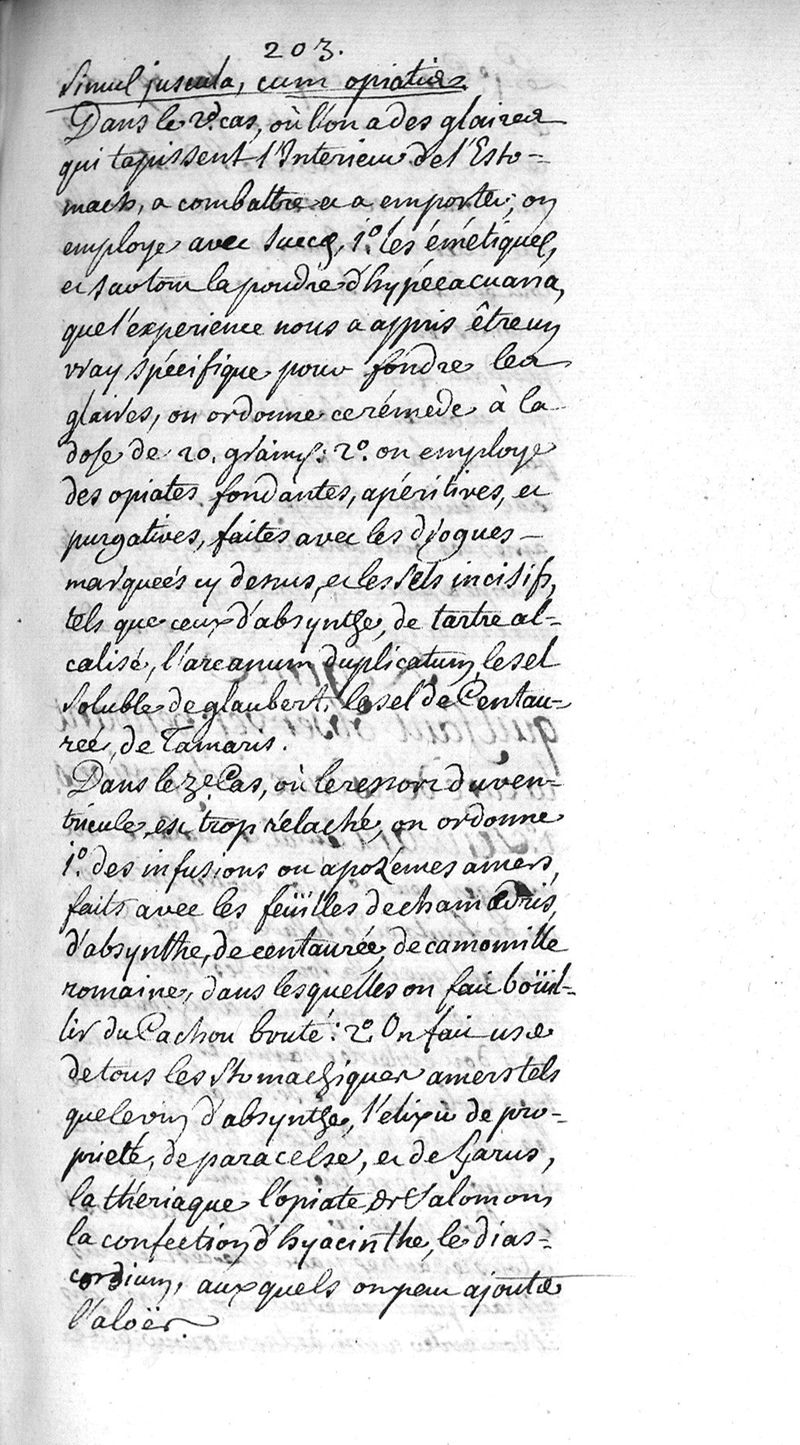 203.
simul juscula, cum opiatis.
Dans le 2d. cas, où l'on a des glaires
qui tapissent l'Interieur de l'Esto-
mach, a combattre et a emporter, on
employe avec succès, 1.° les émétiques,
et surtout la poudre d'hypécacuana,
que l'experience nous a appris être un
vray spécifique pour fondre les
glaires, on ordonne ce rémede à la
dose de 20. grains: 2.° on employe
des opiates fondantes, apéritives, et
purgatives, faites avec les drogues
marqueés cy dessus, et les sels incisifs,
tels que ceux d'absynthe, de tartre al-
calisé, l'arcanum duplicatum, le sel
soluble de glaubert, le sel de Centau-
reé, de Tamaris.
Dans le 3e. Cas, où le ressort du ven-
tricule, est trop rélaché, on ordonne
1.° des infusions ou apozémes amers,
faits avec les feüilles de chamœdris,
d'absynthe, de centaurée, de camomille
romaine, dans lesquelles on fait boüil-
lir du Cachou bruté: 2.° On fait use
de tous les stomachiques amers tels
que le vin d'absynthe, l'elixir de pro-
prieté, de paracelse, et de Garus,
la thériaque l'opiate de Salomon,
la confection d'hyacinthe, le dias-
cordium, auxquels on peut ajouter
l'aloës.